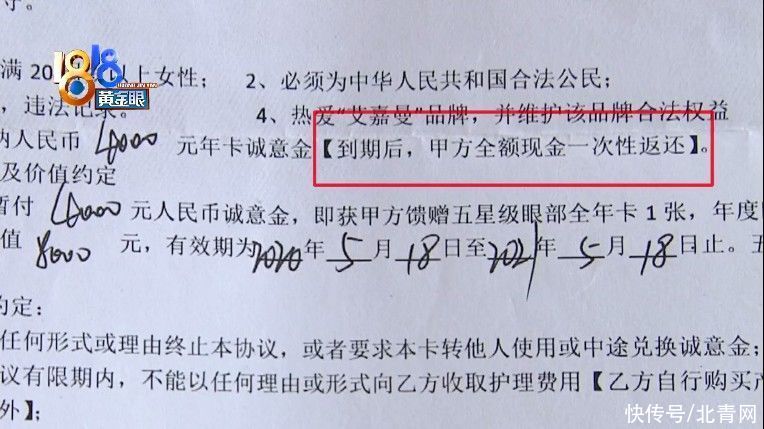 守。
1818
黄金眼
满 20 以上女性； 2、必须为中华人民共和国合法公民；
，违法记录。 4、热爱“艾嘉曼”品牌，并维护该品牌合法权益
纳人民币 4000 元年卡诚意金【到期后，甲方全额现金一次性返还】。
及价值约定
暂付 4000 元人民币诚意金，即获甲方馈赠五星级眼部全年卡 1 张，年度
值 8000 元，有效期为2020年 5 月 18 日至2021年 5 月 18 日止。五
约定：
任何形式或理由终止本协议，或者要求本卡转他人使用或中途兑换诚意金；
议有限期内，不能以任何理由或形式向乙方收取护理费用【乙方自行购买产
外】；
快传号/北青网